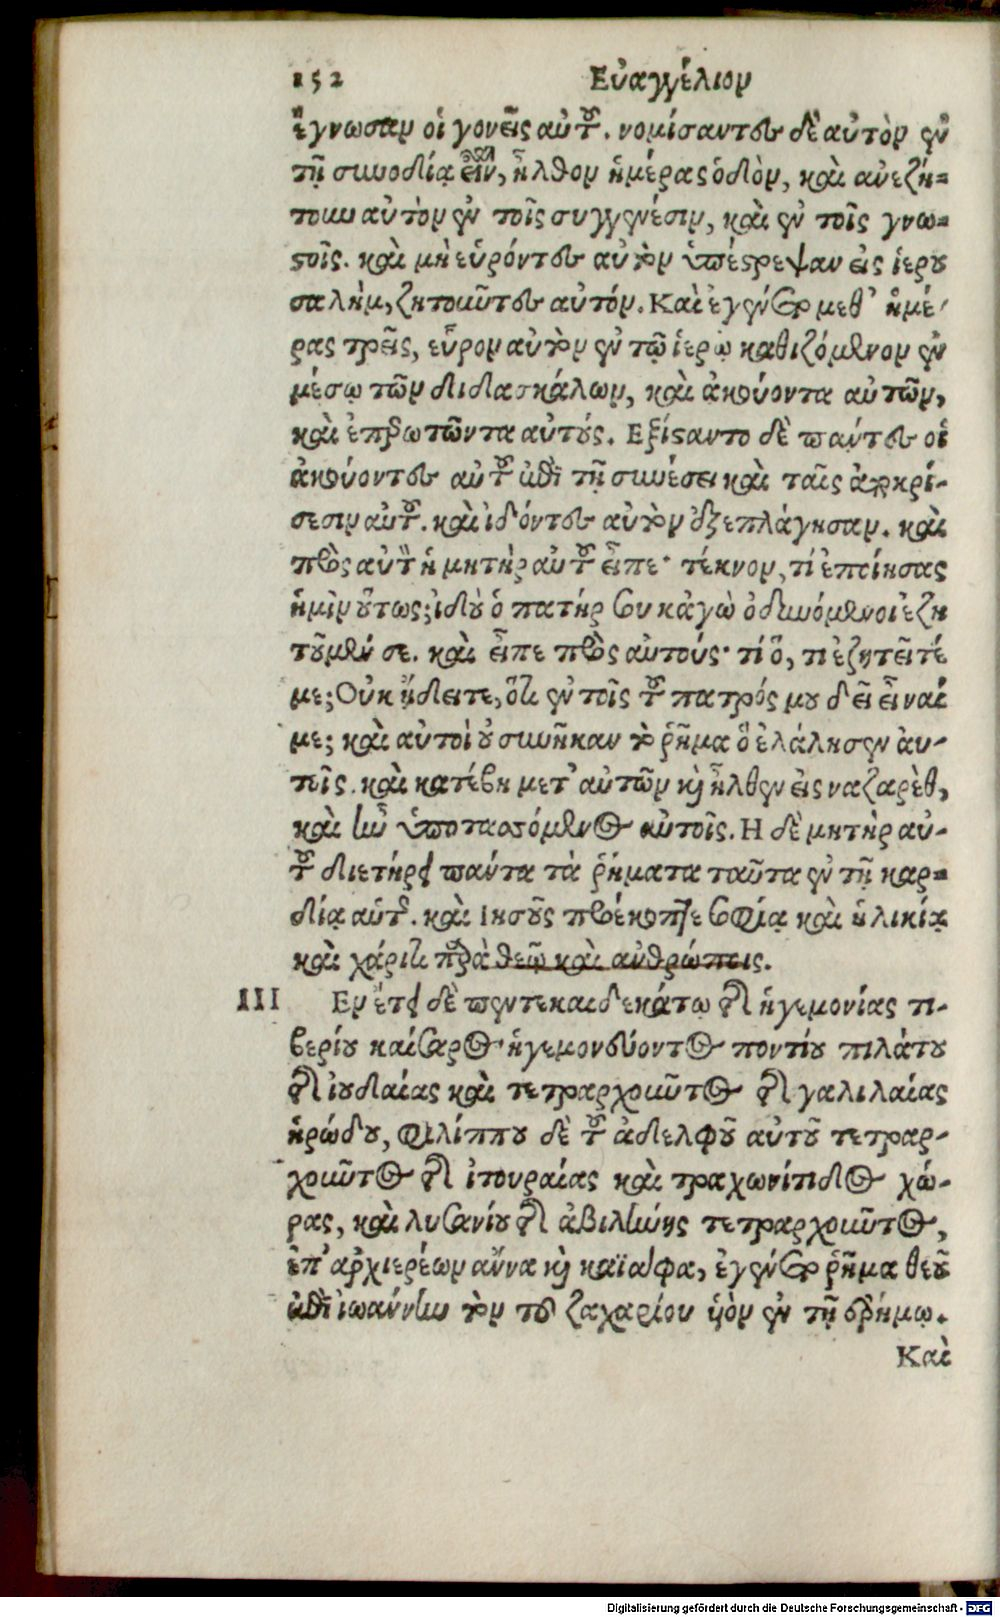 152 Εὐαγγέλιον
ἔγνωσαν οἱ γονεῖς αὐτοῦ. νομίσαντες δὲ αὐτὸν ἐν
τῇ συνοδίᾳ εἶναι, ἦλθον ἡμέρας ὁδὸν, καὶ ἀνεζή-
τουν αὐτὸν ἐν τοῖς συγγενέσιν, καὶ ἐν τοῖς γνω-
στοῖς. καὶ μὴ εὑρόντες αὐτὸν ὑπέστρεψαν εἰς ἱερου
σαλὴμ, ζητοῦντες αὐτόν. Καὶ ἐγένετο μεθ᾽ ἡμέ-
ρας τρεῖς, εὗρον αὐτὸν ἐν τῷ ἱερῷ καθιζόμενον ἐν
μέσῳ τῶν διδασκάλων, καὶ ἀκούοντα αὐτῶν,
καὶ ἐπερωτῶντα αὐτούς. Εξίσταντο δὲ πάντες οἱ
ἀκούοντες αὐτοῦ ἐπὶ τῇ συνέσει καὶ ταῖς ἀποκρί-
σεσιν αὐτοῦ. καὶ ἰδόντες αὐτὸν ἐξεπλάγησαν. καὶ
πρὸς αὐτὸν ἡ μητὴρ αὐτοῦ εἶπε· τέκνον, τί ἐποίησας
ἡμῖν οὕτως; ἰδοὺ ὁ πατήρ σου κἀγὼ ὀδυνόμενοι ἐζη
τοῦμέν σε. καὶ εἶπε πρὸς αὐτούς· τί ὅ, τι ἐζητεῖτέ
με; Οὐκ ᾔδειτε, ὅτι ἐν τοῖς τοῦ πατρός μου δεῖ εἶναί
με; καὶ αὐτοὶ οὐ συνῆκαν τὸ ῥῆμα ὃ ἐλάλησεν αὐ-
τοῖς. καὶ κατέβη μετ᾽ αὐτῶν καὶ ἦλθεν εἰς ναζαρὲθ,
καὶ ἦν ὑποτασσόμενος αὐτοῖς. Η δὲ μητὴρ αὐ-
τοῦ διετήρει πάντα τὰ ῥήματα ταῦτα ἐν τῇ καρ-
δίᾳ αὑτῆς. καὶ Ιησοῦς προέκοπτε σοφίᾳ καὶ ἡλικίᾳ
καὶ χάριτι παρὰ θεῷ καὶ ἀνθρώποις.
III Εν ἔτει δὲ πεντεκαιδεκάτῳ τῆς ἡγεμονίας τι-
βερίου καίσαρος· ἡγεμονεύοντος ποντίου πιλάτου
τῆς ἰουδαίας καὶ τετραρχοῦντος τῆς γαλιλαίας
ἡρώδου, φιλίππου δὲ τοῦ ἀδελφοῦ αὐτοῦ τετραρ-
χοῦντος τῆς ἰτουραίας καὶ τραχωνίτιδος χώ-
ρας, καὶ λυσανίου τῆς ἀβιληνῆς τετραρχοῦντος,
ἐπ᾽ ἀρχιερέων ἄννα καὶ καϊάφα, ἐγένετο ῥῆμα θεοῦ
ἐπὶ ἰωάννην τὸν τοῦ ζαχαρίου ὑὸν ἐν τῇ ἐρήμῳ.
Καὶ
Digitalisierung gefördert durch die Deutsche Forschungsgemeinschaft - DFG